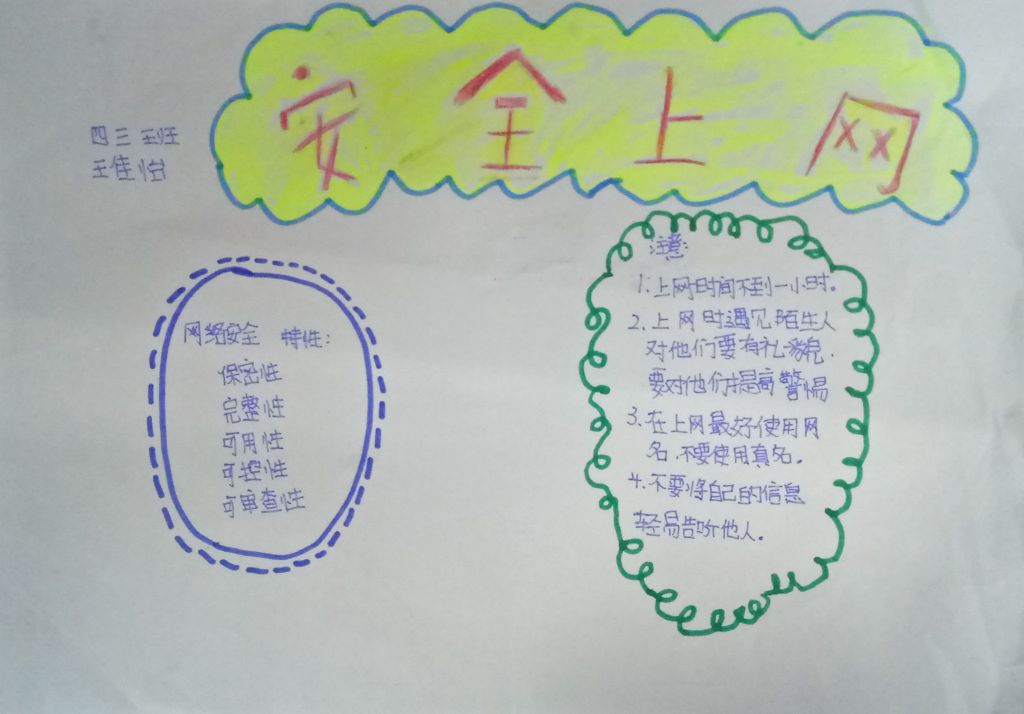 安全上网
四三班
王佳怡
网络安全 特性：
保密性
完整性
可用性
可控性
可审查性
注意：
1.上网时间不到一小时。
2.上网时遇见陌生人
对他们要有礼貌.
要对他们提高警惕
3.在上网最好使用网
名.不要使用真名。
4.不要将自己的信息
轻易告听他人。